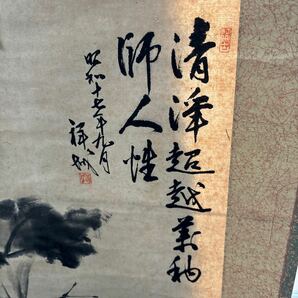 清浄超越萬種
師人性
昭和十七年九月